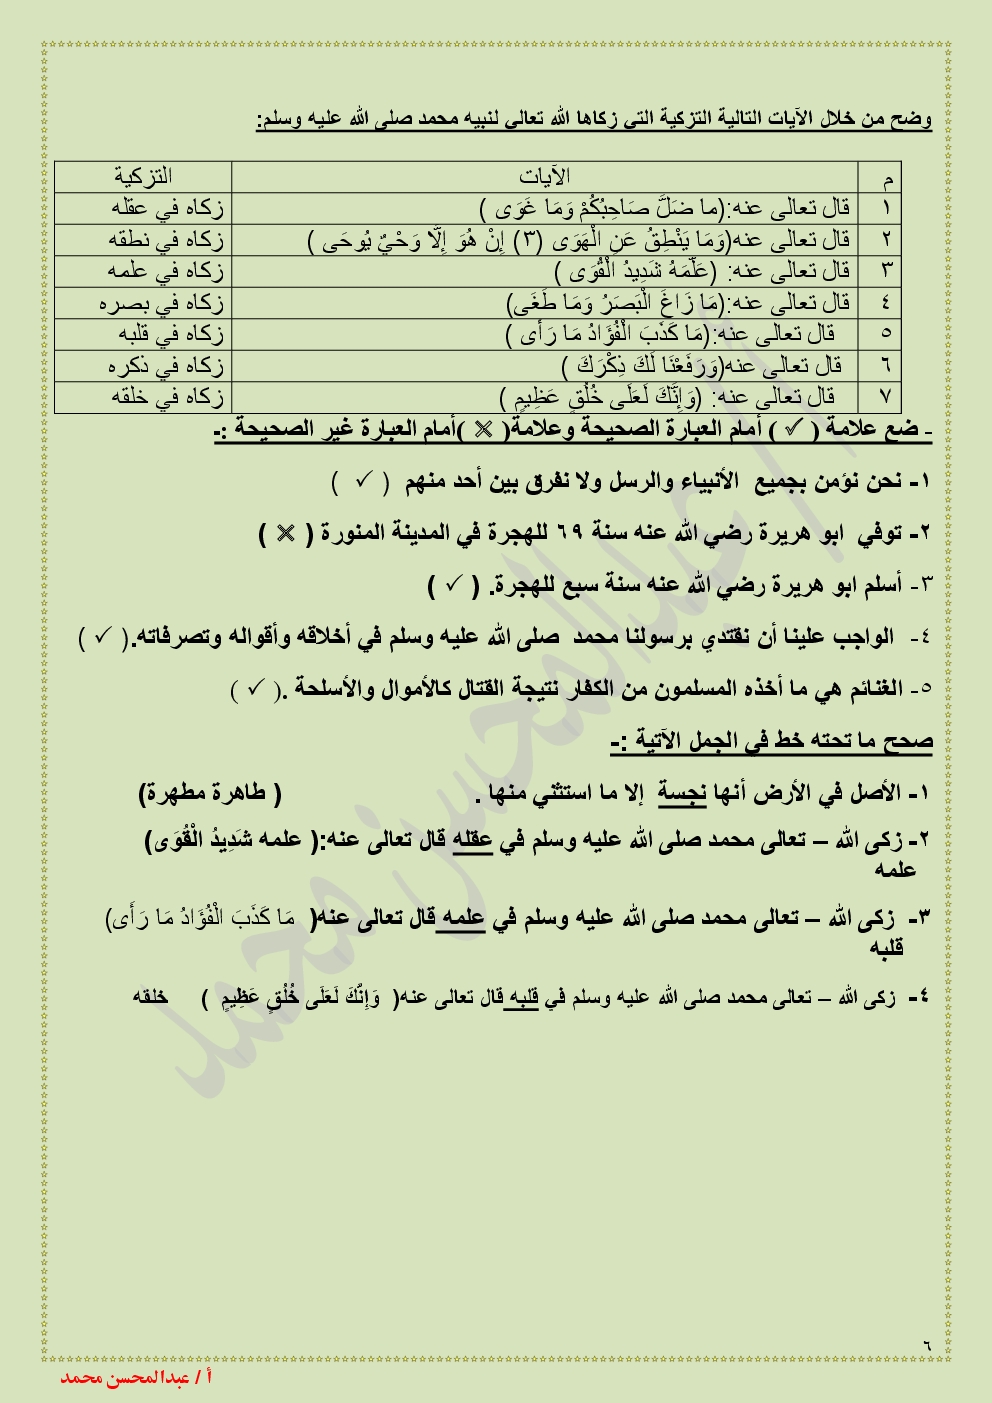 وضح من خلال الآيات التالية التزكية التي زكاها الله تعالى لنبيه محمد صلى الله عليه وسلم:
م الآيات التزكية
١ قال تعالى عنه:(ما ضَلَّ صَاحِبُكُمْ وَمَا غَوَى ) زكاه في عقله
٢ قال تعالى عنه(وَمَا يَنْطِقُ عَنِ الْهَوَى (٣) إِنْ هُوَ إِلَّا وَحْيٌ يُوحَى ) زكاه في نطقه
٣ قال تعالى عنه: (عَلَّمَهُ شَدِيدُ الْقُوَى ) زكاه في علمه
٤ قال تعالى عنه:(مَا زَاغَ الْبَصَرُ وَمَا طَغَى) زكاه في بصره
٥ قال تعالى عنه:(مَا كَذَبَ الْفُؤَادُ مَا رَأَى ) زكاه في قلبه
٦ قال تعالى عنه(وَرَفَعْنَا لَكَ ذِكْرَكَ ) زكاه في ذكره
٧ قال تعالى عنه: (وَإِنَّكَ لَعَلَى خُلُقٍ عَظِيمٍ ) زكاه في خلقه
- ضع علامة ( ✓ ) أمام العبارة الصحيحة وعلامة( ✕ )أمام العبارة غير الصحيحة :-
١- نحن نؤمن بجميع الأنبياء والرسل ولا نفرق بين أحد منهم ( ✓ )
٢- توفي ابو هريرة رضي الله عنه سنة ٦٩ للهجرة في المدينة المنورة ( ✕ )
٣- أسلم ابو هريرة رضي الله عنه سنة سبع للهجرة. ( ✓ )
٤- الواجب علينا أن نقتدي برسولنا محمد صلى الله عليه وسلم في أخلاقه وأقواله وتصرفاته.( ✓ )
٥- الغنائم هي ما أخذه المسلمون من الكفار نتيجة القتال كالأموال والأسلحة .( ✓ )
صحح ما تحته خط في الجمل الآتية :-
١- الأصل في الأرض أنها نجسة إلا ما استثني منها . ( طاهرة مطهرة)
٢- زكى الله – تعالى محمد صلى الله عليه وسلم في عقله قال تعالى عنه:( علمه شَدِيدُ الْقُوَى)
علمه
٣- زكى الله – تعالى محمد صلى الله عليه وسلم في علمه قال تعالى عنه( مَا كَذَبَ الْفُؤَادُ مَا رَأَى)
قلبه
٤- زكى الله – تعالى محمد صلى الله عليه وسلم في قلبه قال تعالى عنه( وَإِنَّكَ لَعَلَى خُلُقٍ عَظِيمٍ ) خلقه
أ / عبدالمحسن محمد
٦
أ / عبدالمحسن محمد